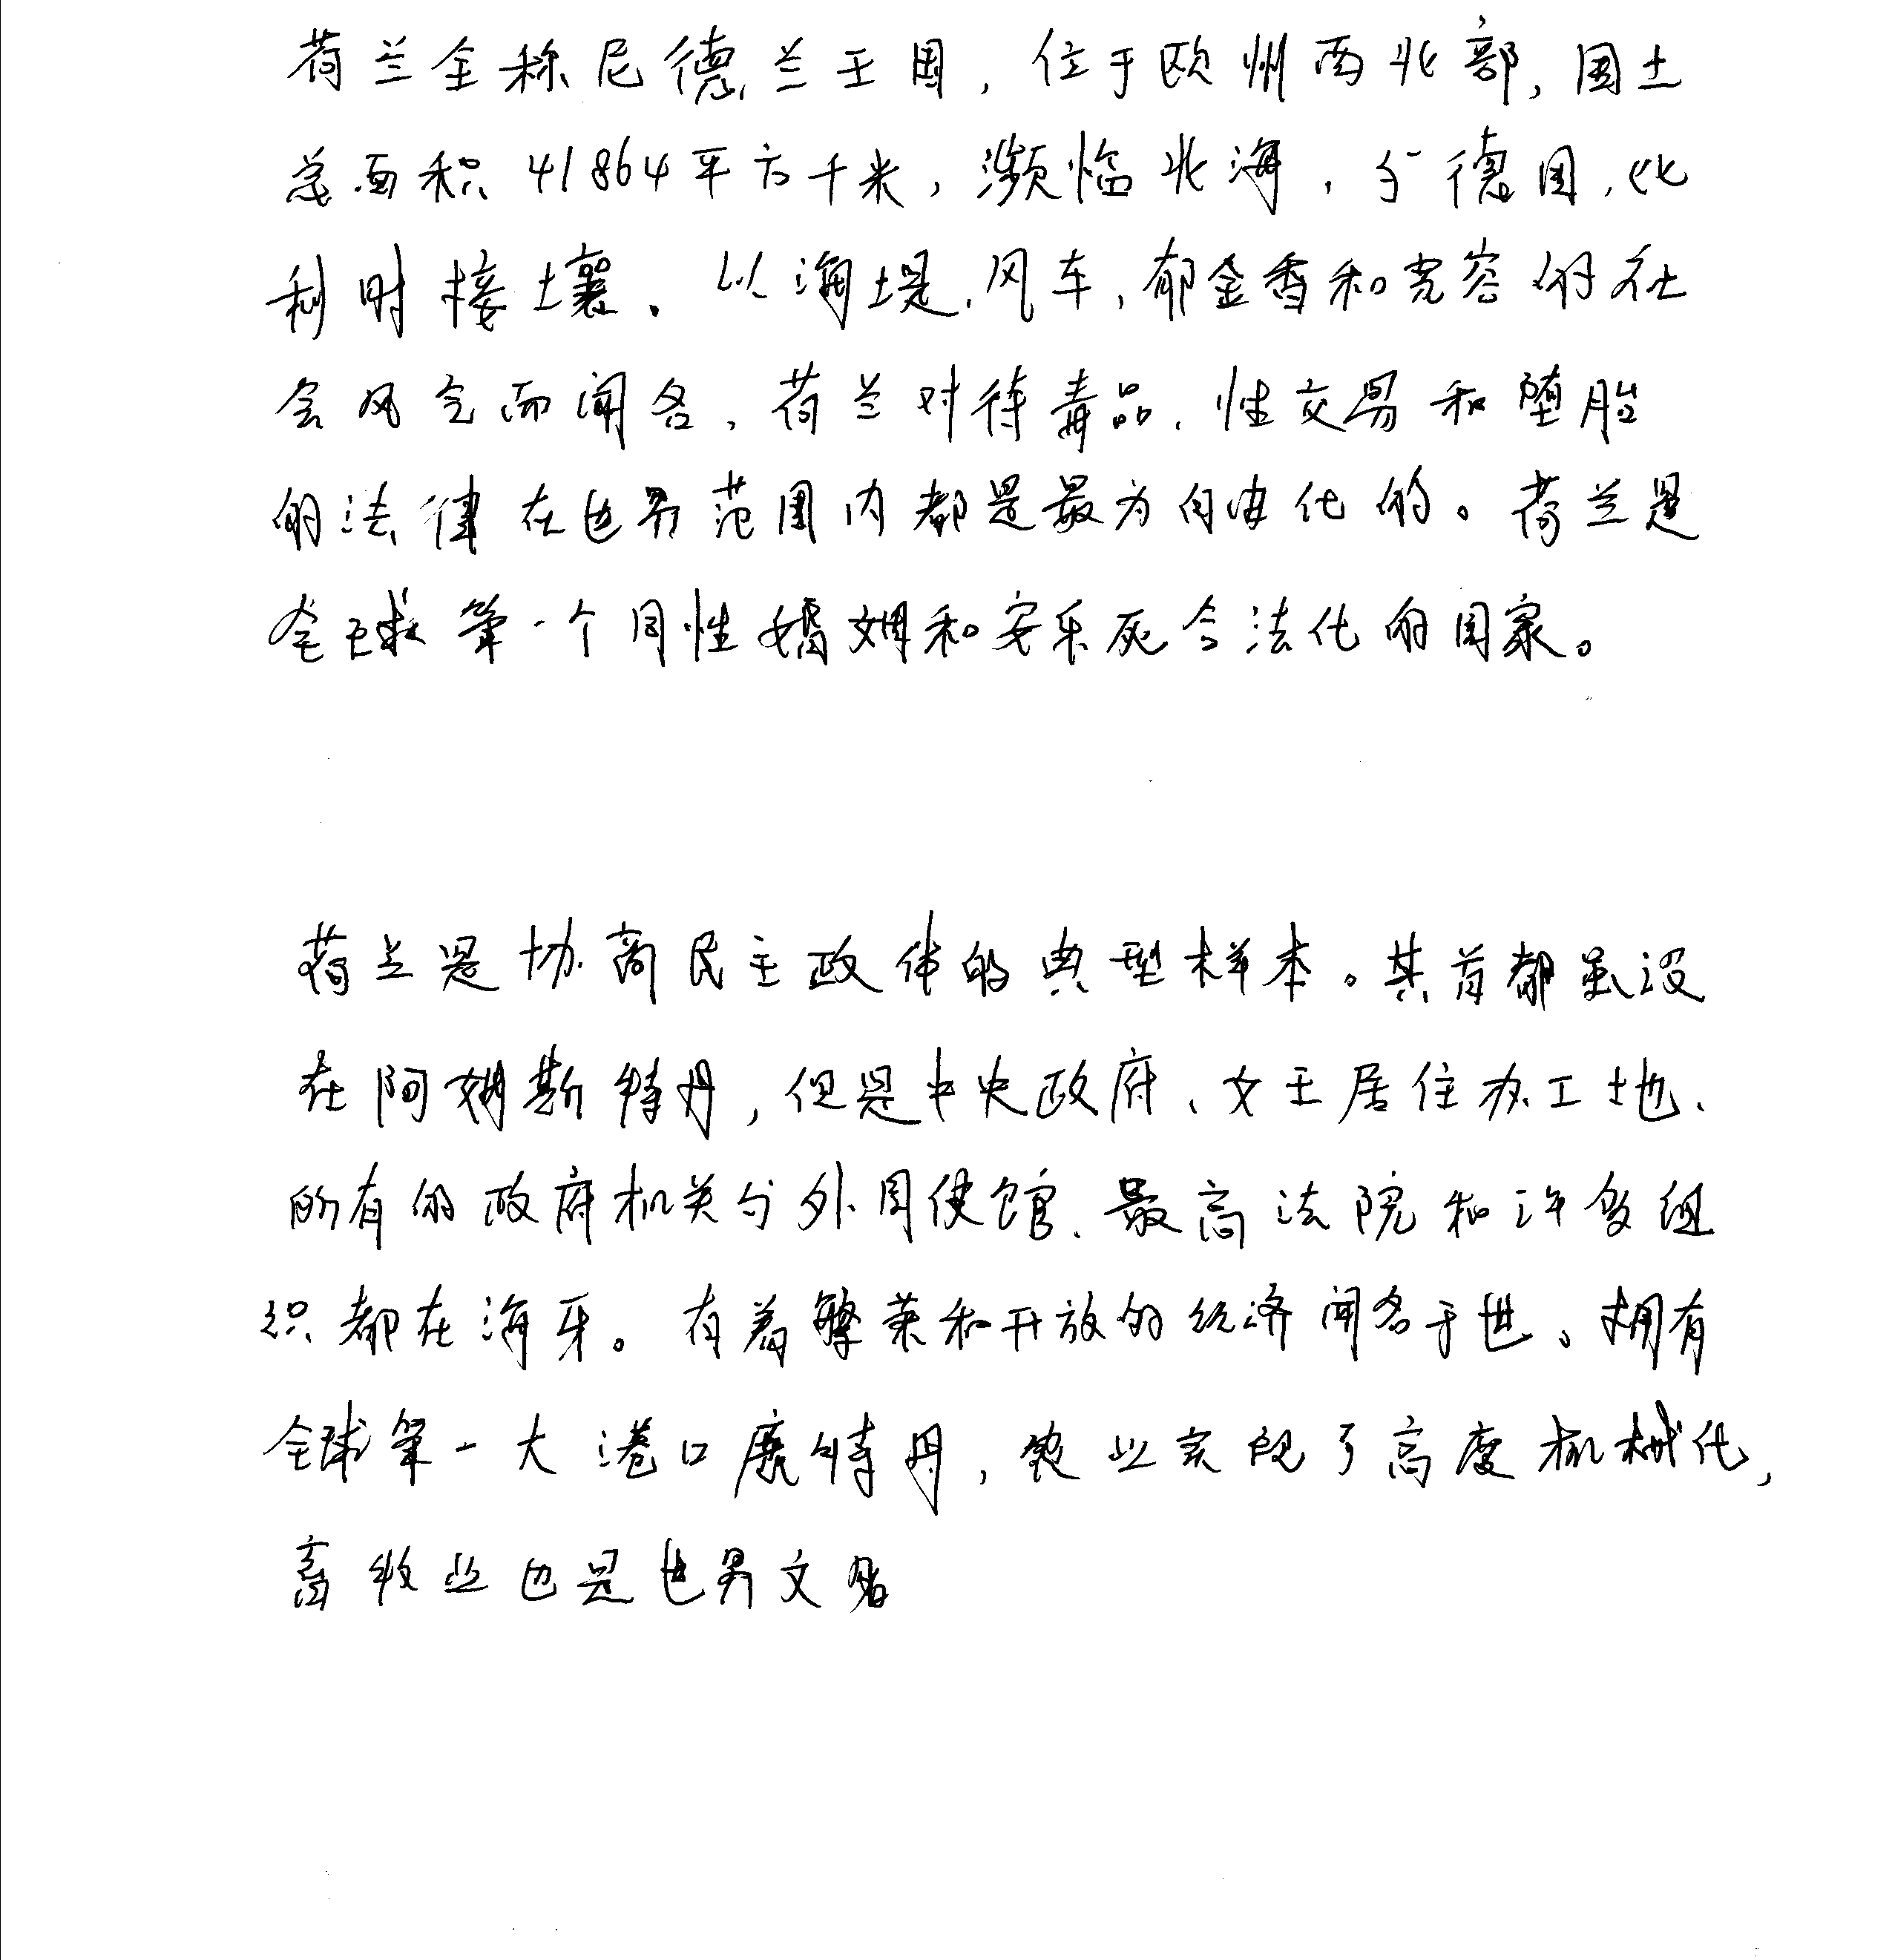 荷兰全称尼德兰王国,位于欧州西北部,国土
总面积41864平方千米,濒临北海,与德国,比
利时接壤。以海堤,风车,郁金香和宽容的社
会风气而闻名,荷兰对待毒品,性交易和堕胎
的法律在世界范围内都是最为自由化的。荷兰是
全球第一个同性婚姻和安乐死合法化的国家。
荷兰是协商民主政体的典型样本。其首都虽设
在阿姆斯特丹,但是中央政府、女王居住办工地、
所有的政府机关与外国使馆、最高法院和许多组
织都在海牙。有着繁荣和开放的经济闻名于世。拥有
全球第一大港口鹿特丹,农业实现了高度机械化,
畜牧业也是世界文明